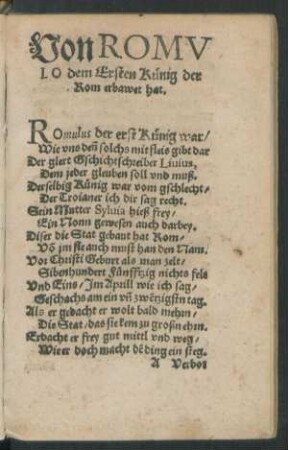 Von ROMV
LO dem Ersten Künig der
Rom erbawet hat.
ROmulus der erst Künig war/
Wie vns deñ solchs mit fleis gibt dar
Der glert Gschichtschreiber Liuius,
Dem jeder glauben soll vnd muß.
Derselbig Künig war vom gschlecht/
Der Troianer ich dir sag recht.
Sein Mutter Syluia hieß frey/
Ein Nonn gewesen auch darbey.
Diser die Stat gebaut hat Rom/
Võ jm sie auch must han den Nam.
Vor Christi Geburt als man zelt/
Sibenhundert Fünfftzig nichts felt
Vnd Eins/ Jm Aprill wie ich sag/
Geschachs am ein vñ zwẽtzigstn tag.
Als er gedacht er wolt bald mehrn/
Die Stat/ das sie kem zu großn ehrn.
Erdacht er frey gut mittl vnd weg/
Wie er doch macht dẽ ding ein steg.
A Verbot